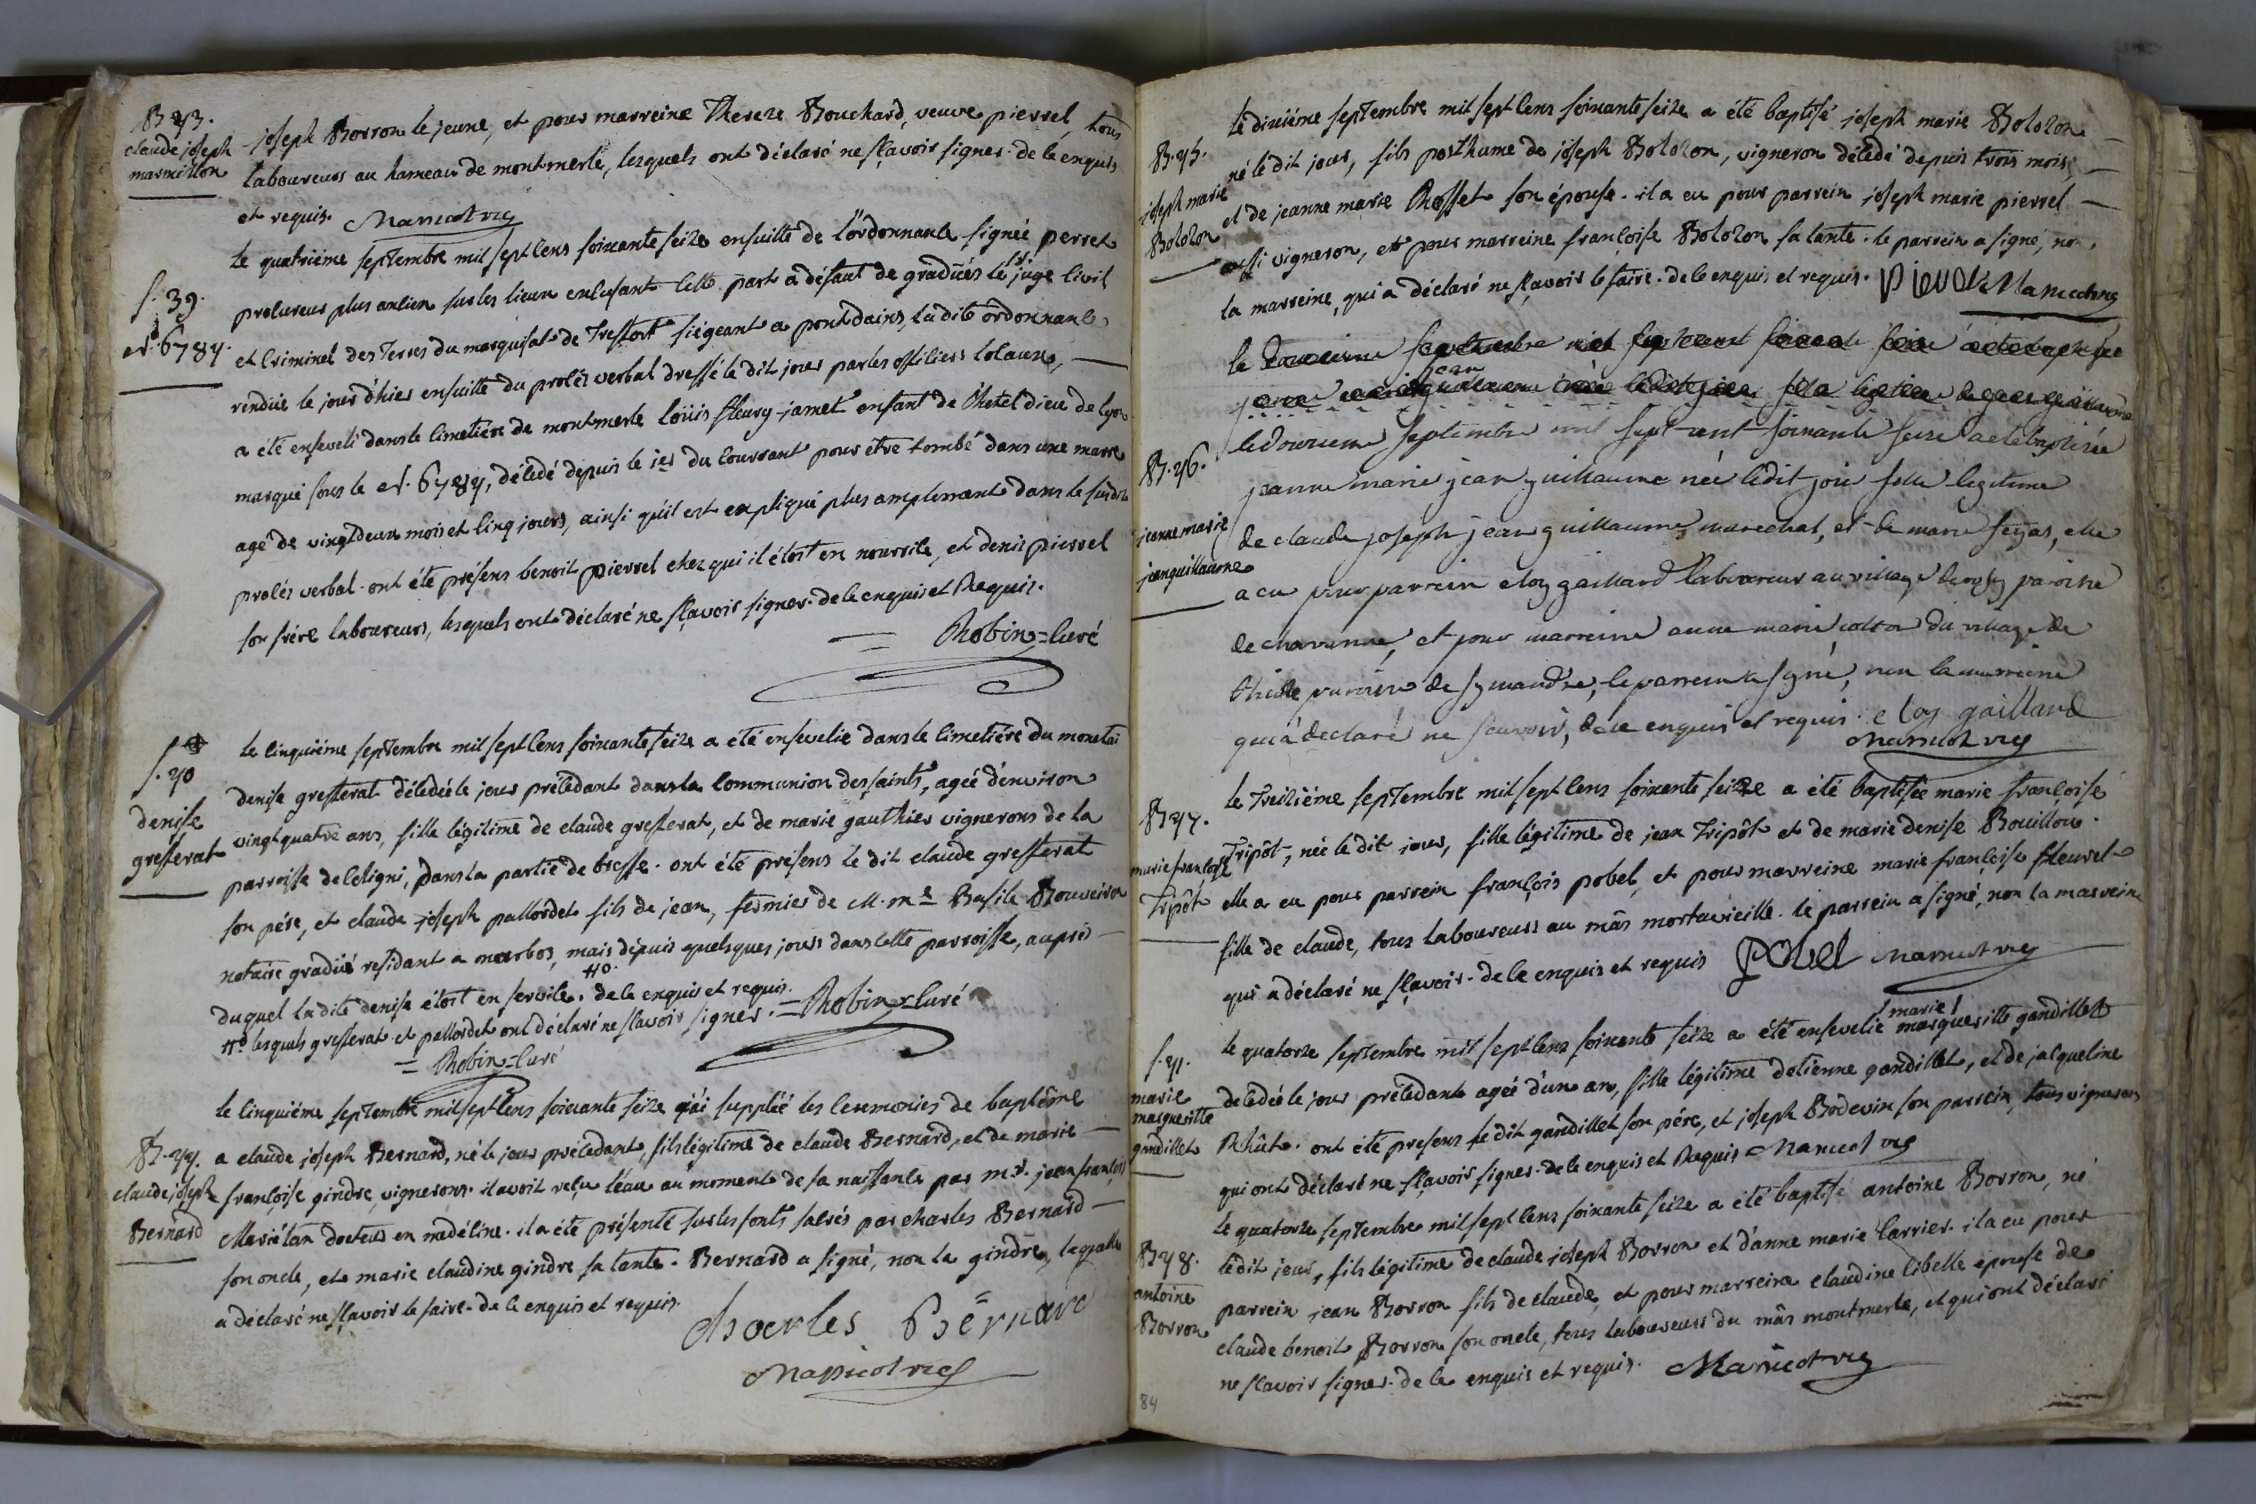 B 43.
claude joseph
marmillon
joseph Borron le jeune, et pour marreine Thereze Bouchard, veuve pierrel, tous
laboureurs au hameau de montmerle, lesquels ont déclaré ne sçavoir signer. de ce enquis
et requis. Marricot vic
s. 39.
N°. 6784.
le quatriéme septembre mil sept cens soixante seize ensuitte de l'ordonnance signée perret
procureur plus ancien sur les lieux en cette part a défaut de gradués le sr juge civil
et criminel des Terres du marquisat de Treffort siégeant a pontdains, la dite ordonnance
rendüe le jour d'hier ensuitte du procés verbal dressé le dit jour par les officiers locaux,
a été enseveli dans le cimetiére de montmerle loüis fleury jamet enfant de l'hotel dieu de lyon
marqué sous le N°. 6784, décedé depuis le 1er du courrant pour être tombé dans une marre
agé de vingt deux mois et cinq jours, ainsi qu'il est expliqué plus amplement dans le susdit
procés verbal. ont été présens benoit pierrel chez qui il étoit en nourrice, et denis pierrel
son frére laboureurs, lesquels ont déclaré ne sçavoir signer. de ce enquis et Requis.
Robin=curé
s. 40
denise
grefferat
le cinquiéme septembre mil sept cens soixante seize a été ensevelie dans le cimetiére du monetai
denise grefferat décedée le jour précedant dans la communion des saints, agée d'environ
vingt quatre ans, fille légitime de claude grefferat, et de marie gauthier vignerons de la
parroisse de Coligni, dans la partie de bresse. ont été présens le dit claude grefferat
son pére, et claude joseph pallordet fils de jean, fermier de M. me Basile Bouveiron
notaire gradüé residant a marbos, mais dépuis quelsques jours dans cette parroisse, auprès
duquel la dite denise étoit en service. #° de ce enquis et requis.
#° lesquels grefferat et pallordet ont déclaré ne sçavoir signer. =Robin=curé
=Robin=curé
B. 44.
claude joseph
Bernard
le cinquiéme septembre mil sept cens soixante seize j'ai supplée les ceremonies de baptême
a claude joseph Bernard, né le jour précedant, fils légitime de claude Bernard, et de marie
françoise gindre, vignerons. il avoit reçu l'eau au moment de sa naissance par mr. jean françois
Mariétan docteur en médécine. il a été présenté sur les fonts sacrés par charles Bernard
son oncle, et marie claudine gindre sa tante. Bernard a signé, non la gindre, laquelle
a déclaré ne sçavoir le faire. de ce enquis et requis.
charles Bernard
Marricot vic
B. 45.
joseph marie
Bolozon
Le dixiéme septembre mil sept cens soixante seize a été baptisé joseph marie Bolozon
né le dit jour, fils posthume de joseph Bolozon, vigneron décedé depuis trois mois
et de jeanne marie Rosset son épouse. il a eu pour parrein joseph marie pierrel
aussi vigneron, et pour marreine françoise Bolozon sa tante. le parrein a signé, non
la marreine, qui a déclaré ne sçavoir le faire. de ce enquis et requis. Pierel Marricot vic
B. 46.
jeanne marie
jeanguillaume
le douzieme septembre mil sept cent soixante seize a été baptisée
le douzieme septembre mil sept cent soixante seize a été baptisée
jeanne marie jean guillaume née ledit jour fille legitime
de claude joseph jean guillaume marechal, et de marie seijas, elle
a eu pour parrein eloy gaillard laboureur au village paroisse
de chavanne, et pour marreine anne marie du village de
paroisse de symandre, le parrein a signé, non la marreine
qui a declaré ne sçavoir, de ce enquis et requis. eloy gaillard
Marricot vic
B 47.
marie françoise
Tripôt
le Treiziéme septembre mil sept cens soixante seize a été baptisée marie françoise
Tripôt, née le dit jour, fille légitime de jean Tripôt et de marie denise Bouillou.
elle a eu pour parrein françois pobel, et pour marreine marie françoise fleuret
fille de claude, tous laboureurs au mâs mortavieille. le parrein a signé, non la marreine
qui a déclaré ne sçavoir. de ce enquis et requis Pobel Marricot vic
s. 41.
marie
margueritte
gandillet
le quatorze septembre mil sept cens soixante seize a été ensevelie marie marguerite gandillet
décedée le jour précedant agée d'un an, fille légitime d'étienne gandillet, et de jacqueline
Rhût. ont été presens le dit gandillet son pére, et joseph Bodevin son parrein, tous vignerons
qui ont déclaré ne sçavoir signer. de ce enquis et Requis Marricot vic
B 48.
antoine
Borron
le quatorze septembre mil sept cens soixante seize a été baptisé antoine Borron, né
ledit jour, fils légitime de claude joseph Borron et d'anne marie Carrier. il a eu pour
parrein jean Borron fils de claude, et pour marreine claudine Cibelle epouse de
claude benoit Borron son oncle, tous laboureurs du mâs montmerle, et qui ont déclaré
ne sçavoir signer. de ce enquis et requis. Marricot vic
84